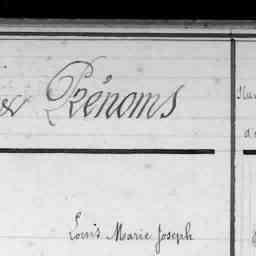 & Prénoms
d'
Louis Marie Joseph